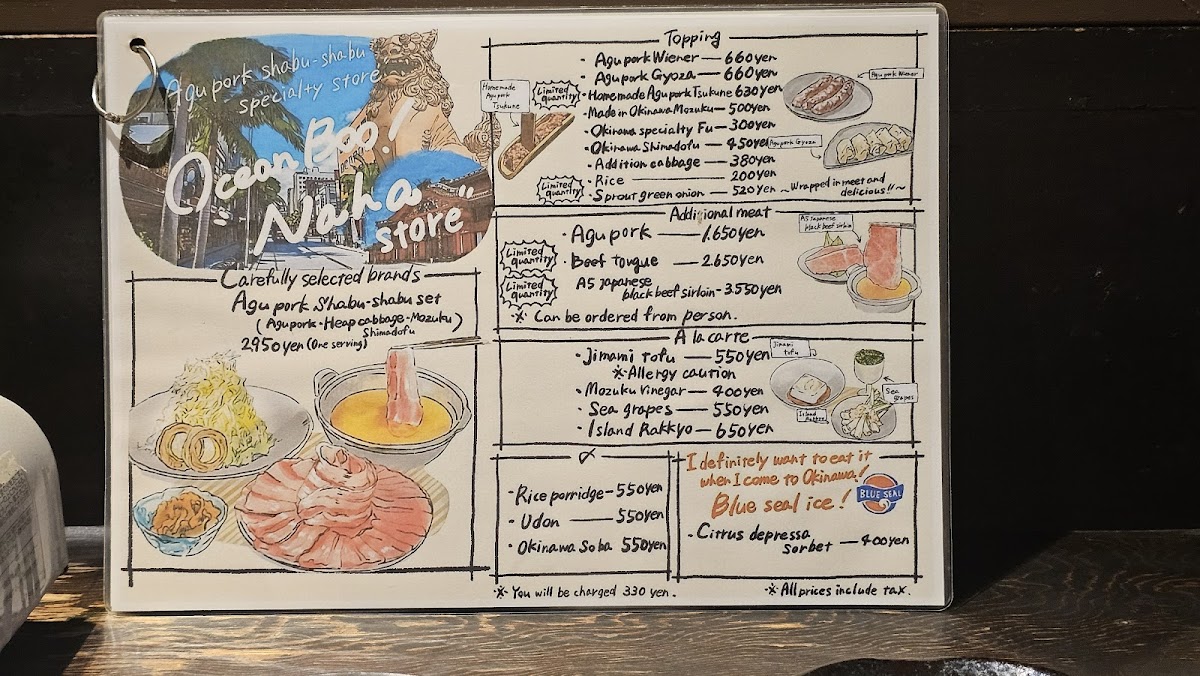 Agu pork shabu-shabu
specialty store
Ocean Boo!
Naha
store
Carefully selected brands
Agu pork Shabu-shabu set
(Agu pork・Heap cabbage・Mozuku)
Shimadofu
2,950yen (One serving)
Topping
・Agu pork Wiener — 660yen
・Agu pork Gyoza — 660yen
Limited quantity
・Homemade Agu pork Tsukune 630yen
・Made in Okinawa Mozuku — 500yen
・Okinawa specialty Fu — 300yen
・Okinawa Shimadofu — 450yen
・Addition cabbage — 380yen
・Rice — 200yen
Limited quantity
・Sprout green onion — 520yen
Homemade
Agu pork
Tsukune
Agu pork Wiener
Agu pork Gyoza
~Wrapped in meet and
delicious!!~
Addi,ional meat
・Agu pork — 1.650yen
Limited quantity
・Beef tongue — 2.650yen
Limited quantity
A5 Japanese
black beef sirloin - 3.550yen
※ Can be ordered from person.
A5 Japanese
black beef sirloin
A la carte
・Jimami tofu — 550yen
※Allergy caution
・Mozuku Vinegar — 400yen
・Sea grapes — 550yen
・Island Rakkyo — 650yen
Jimami
tofu
Sea
grapes
Island
Rakkyo
・Rice porridge - 550yen
・Udon — 550yen
・Okinawa Soba 550yen
※ You will be charged 330 yen.
I definitely want to eat it
when I come to Okinawa!
Blue seal ice!
BLUE SEAL
・Citrus depressa
sorbet — 400yen
※All prices include tax.